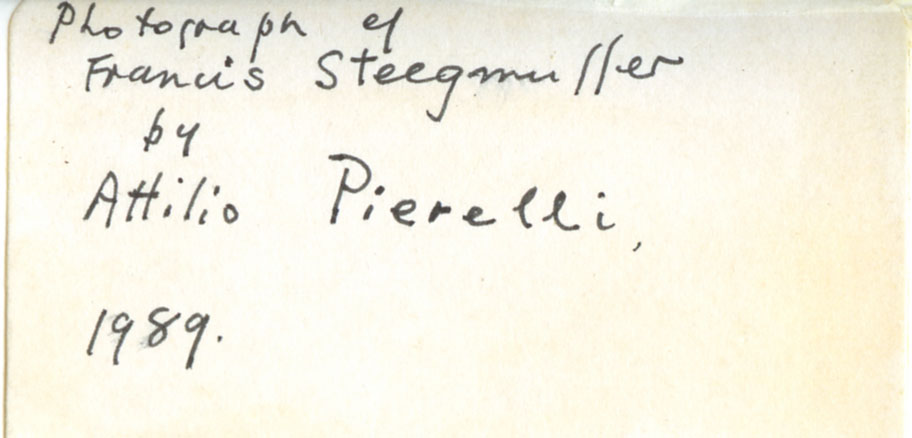 Photograph of
Francis Steegmuller
by
Attilio Pierelli,
1989.